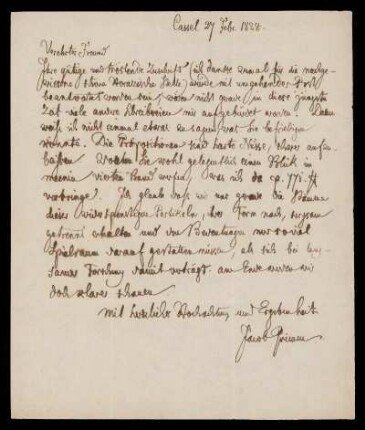 Cassel 27 Febr. 1838.
Verehrter Freund
Ihre gütige und tröstende Zuschrift (ich danke zumal für die
Ihrem Stelle) würde mit umgehender Post
beantwortet worden sein, wären nicht grade in diese jüngste
Zeit viele andre Schreibereien mir aufgebürdet worden. Dazu
weiß ich nicht einmal etwas zu sagen was Sie befriedigen
könnte. Die Präpositionen sind harte Nüsse, schwer aufzu-
beißen. Wollen Sie wohl gelegentlich einen Blick in
meinen vierten Band werfen, was ich da cap.
vorbringe? Ich glaube daß wir nur grade die Stämme
dieser widerspenstigen Partikeln, der Form nach, sorgsam
getrennt erhalten und den Bedeutungen nur soviel
Spielraum darauf gestatten müssen, als sich bei
Forschung damit verträgt. am Ende werden wir
doch klarer schauen
Mit herzlicher Hochachtung und Ergebenheit
Jacob Grimm.